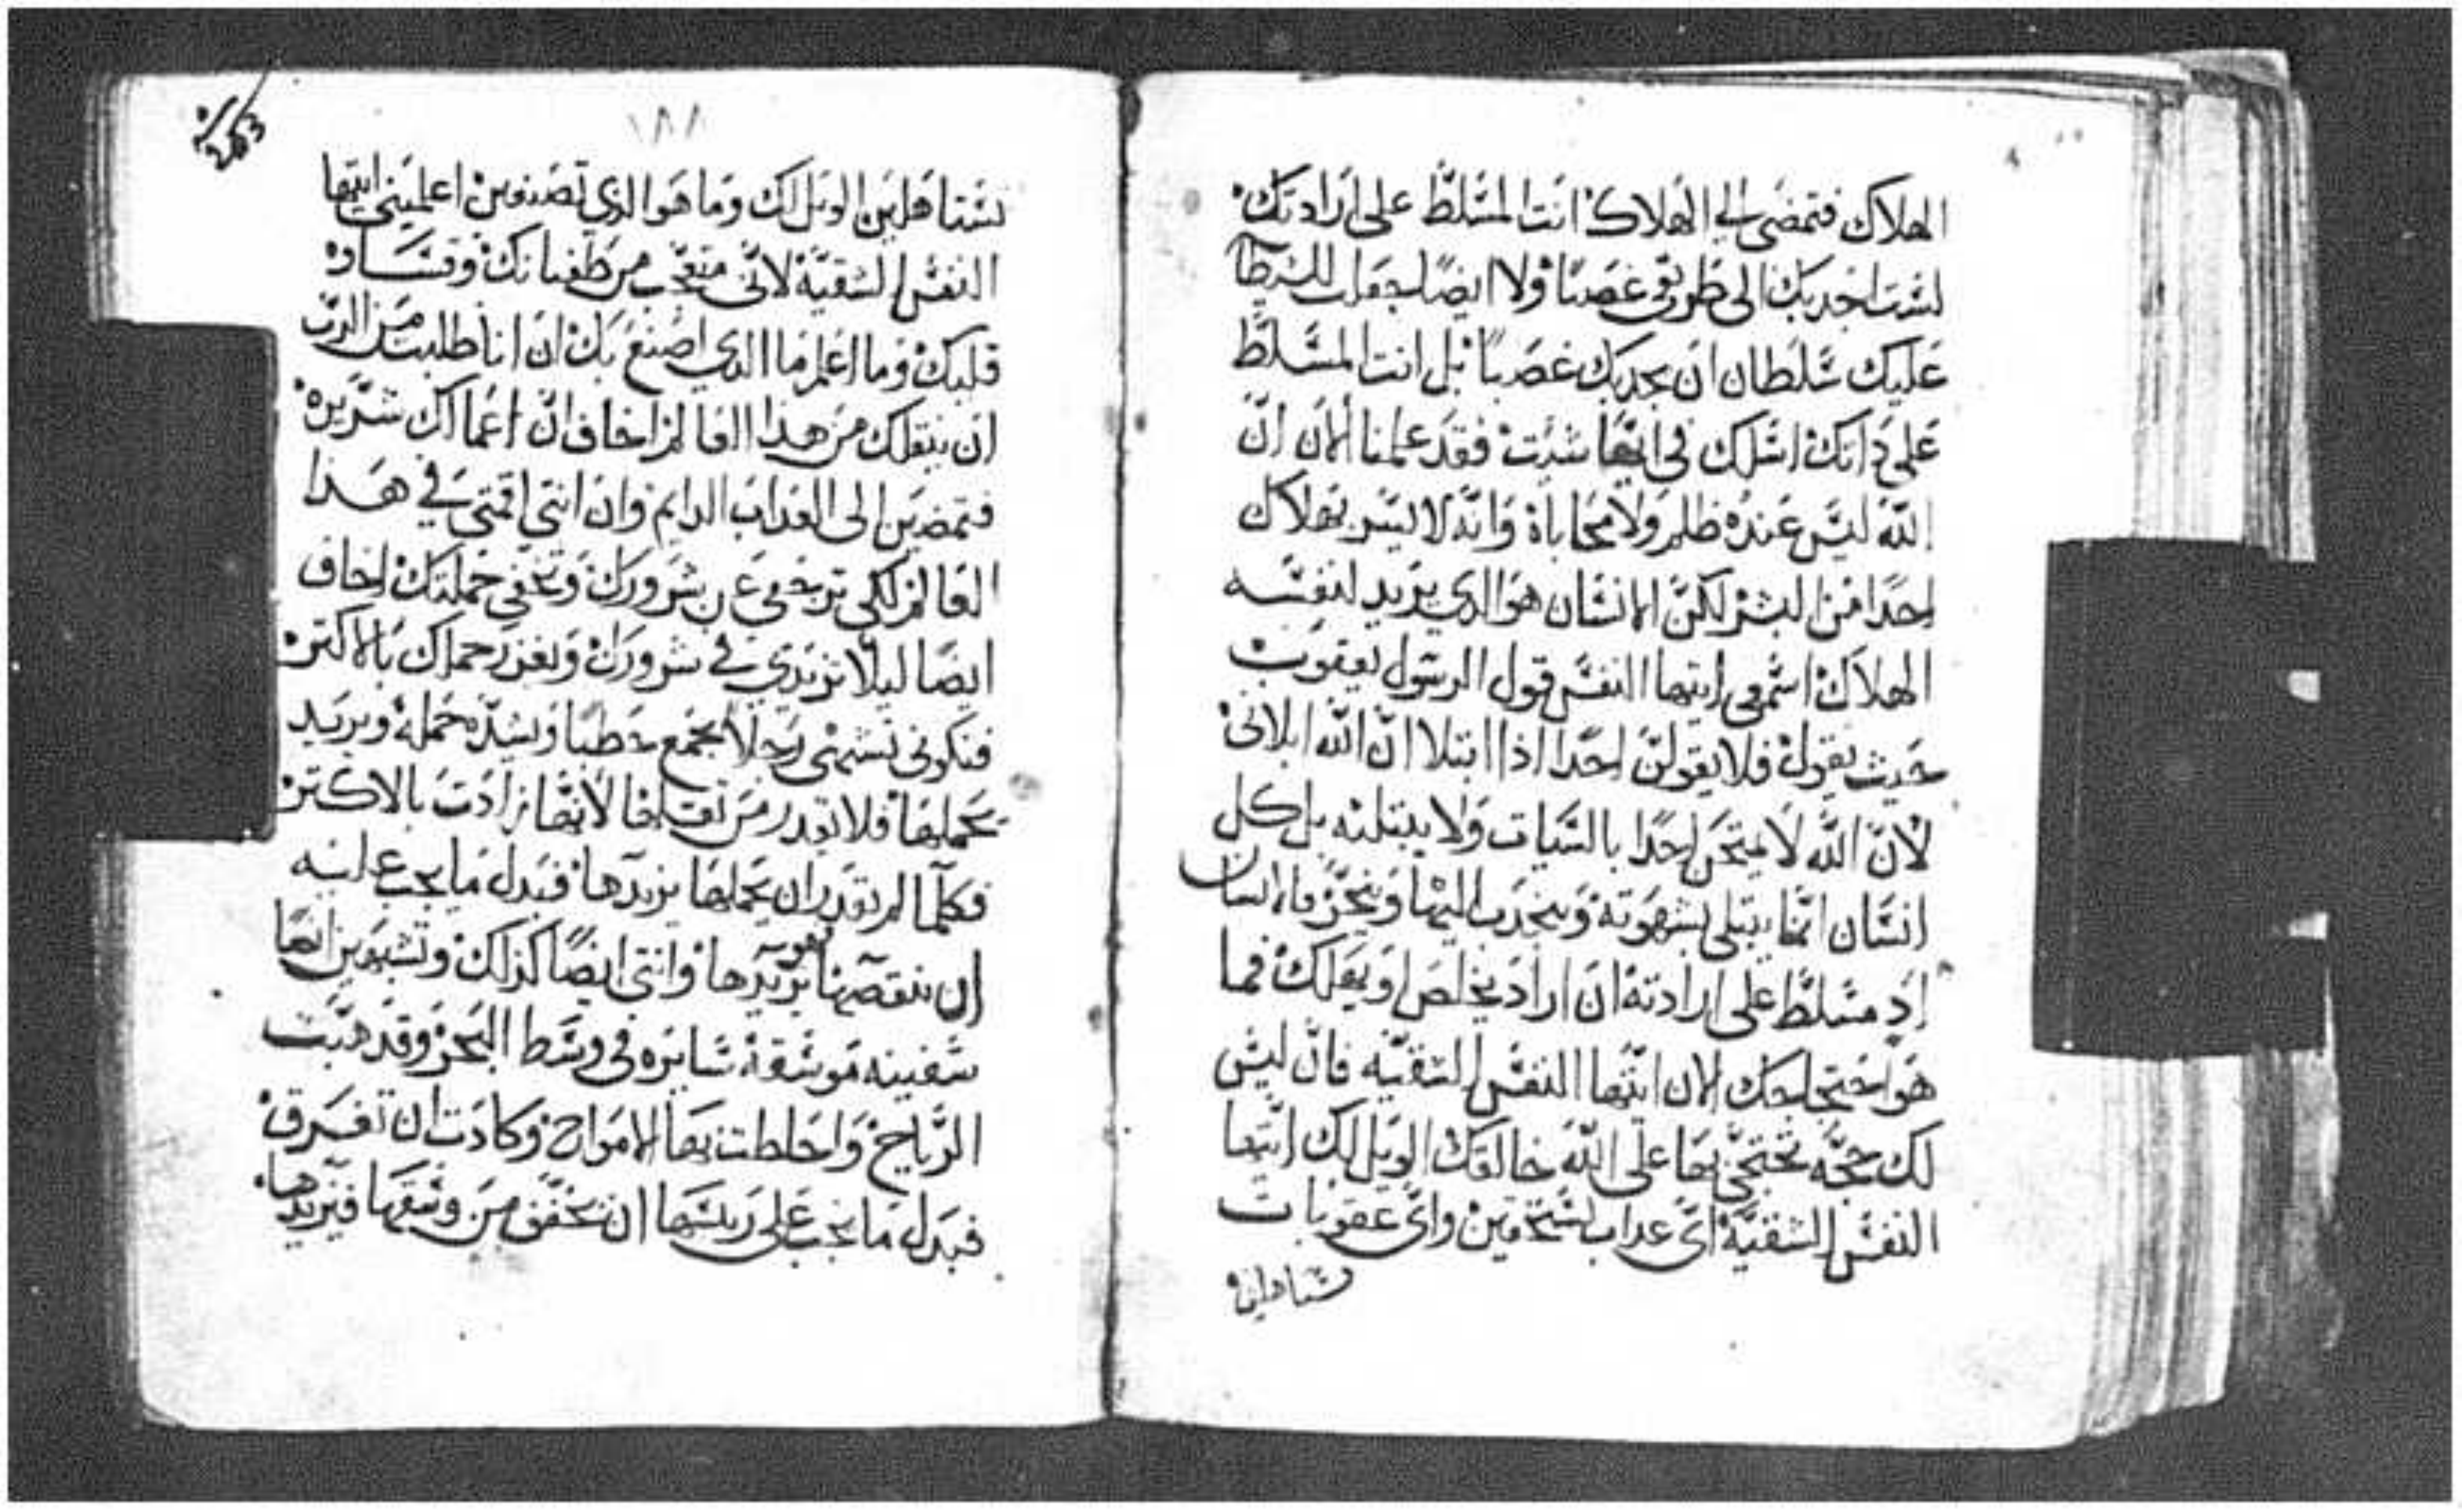 الهلاك فتمضي الي الهلاك انت المسلط على ارادتك
لست اجدبك الى طريقى غصبًا ولا ايضًا جعلت للشيطان
عليك سلطان ان يجدبك غصبًا بل انت المسلط
على داتك اسلك في ايها شيت فقد علمنا الان ان
الله ليس عنده ظلم ولا محاباة وانه لا يسر بهلاك
احدًا من البشر لكن الانسان هو الدي يريد لنفسه
الهلاك اسمعي ايتها النفس قول الرسول يعقوب
حيث يقول فلا يقولن احدًا اذا ابتلا ان الله ابلانى
لان الله لا يمتحن احدًا بالسيات ولا يبتليه بل كل
انسان انما يبتلى بشهوته وينجدب اليها وينجر فالانسان
اد مسلط على ارادته ان اراد يخلص او يهلك فما
هو احتجاجك الان ايتها النفس الشقيه فان ليس
لك حجه تحتجي بها على الله خالقك الويل لك ايتها
النفس الشقيه اي عداب تستحقين واي عقوبات
تستاهلين
١٨٨
تستاهلين الويل لك وما هو الدي تصنعين اعلميني ايتها
النفس الشقية لاني متعجب من طغيانك وقساوه
قلبك وما اعلم ما الدي اصنع بك ان انا طلبت من الرب
ان ينقلك من هذا العالم اخاف ان اعمالك شريره
فتمضين الى العداب الدايم وان انتي اقمتي في هدا
العالم لكي ترجعي عن شرورك وتخفي حملتك اخاف
ايضًا ليلا تزيدي في شرورك ويعزر حملك بالاكتر
فتكوني تشبهى رجلا يجمع حطبًا ويشده حمله ويريد
يحملها فلا يقدر من تقلها لانها زادت بالاكتر
فكلما لم يقدر ان يحملها يزيدها فبدل ما يجب عليه
ان ينقصها هو يزيدها وانتي ايضًا كذلك وتشبهين ايضًا
سفينه موسقه سايره في وسط البحر وقد هبت
الرياح واحاطت بها الامواج وكادت ان تغرق
فبدل ما يجب على ريسها ان يخفف من وسقها فيزيدها